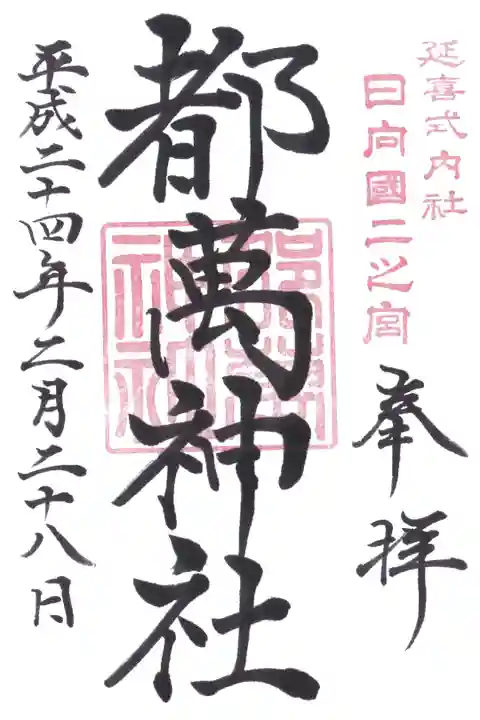 延喜式内社
日向國二之宮
奉拜
都萬神社
平成二十四年二月二十八日